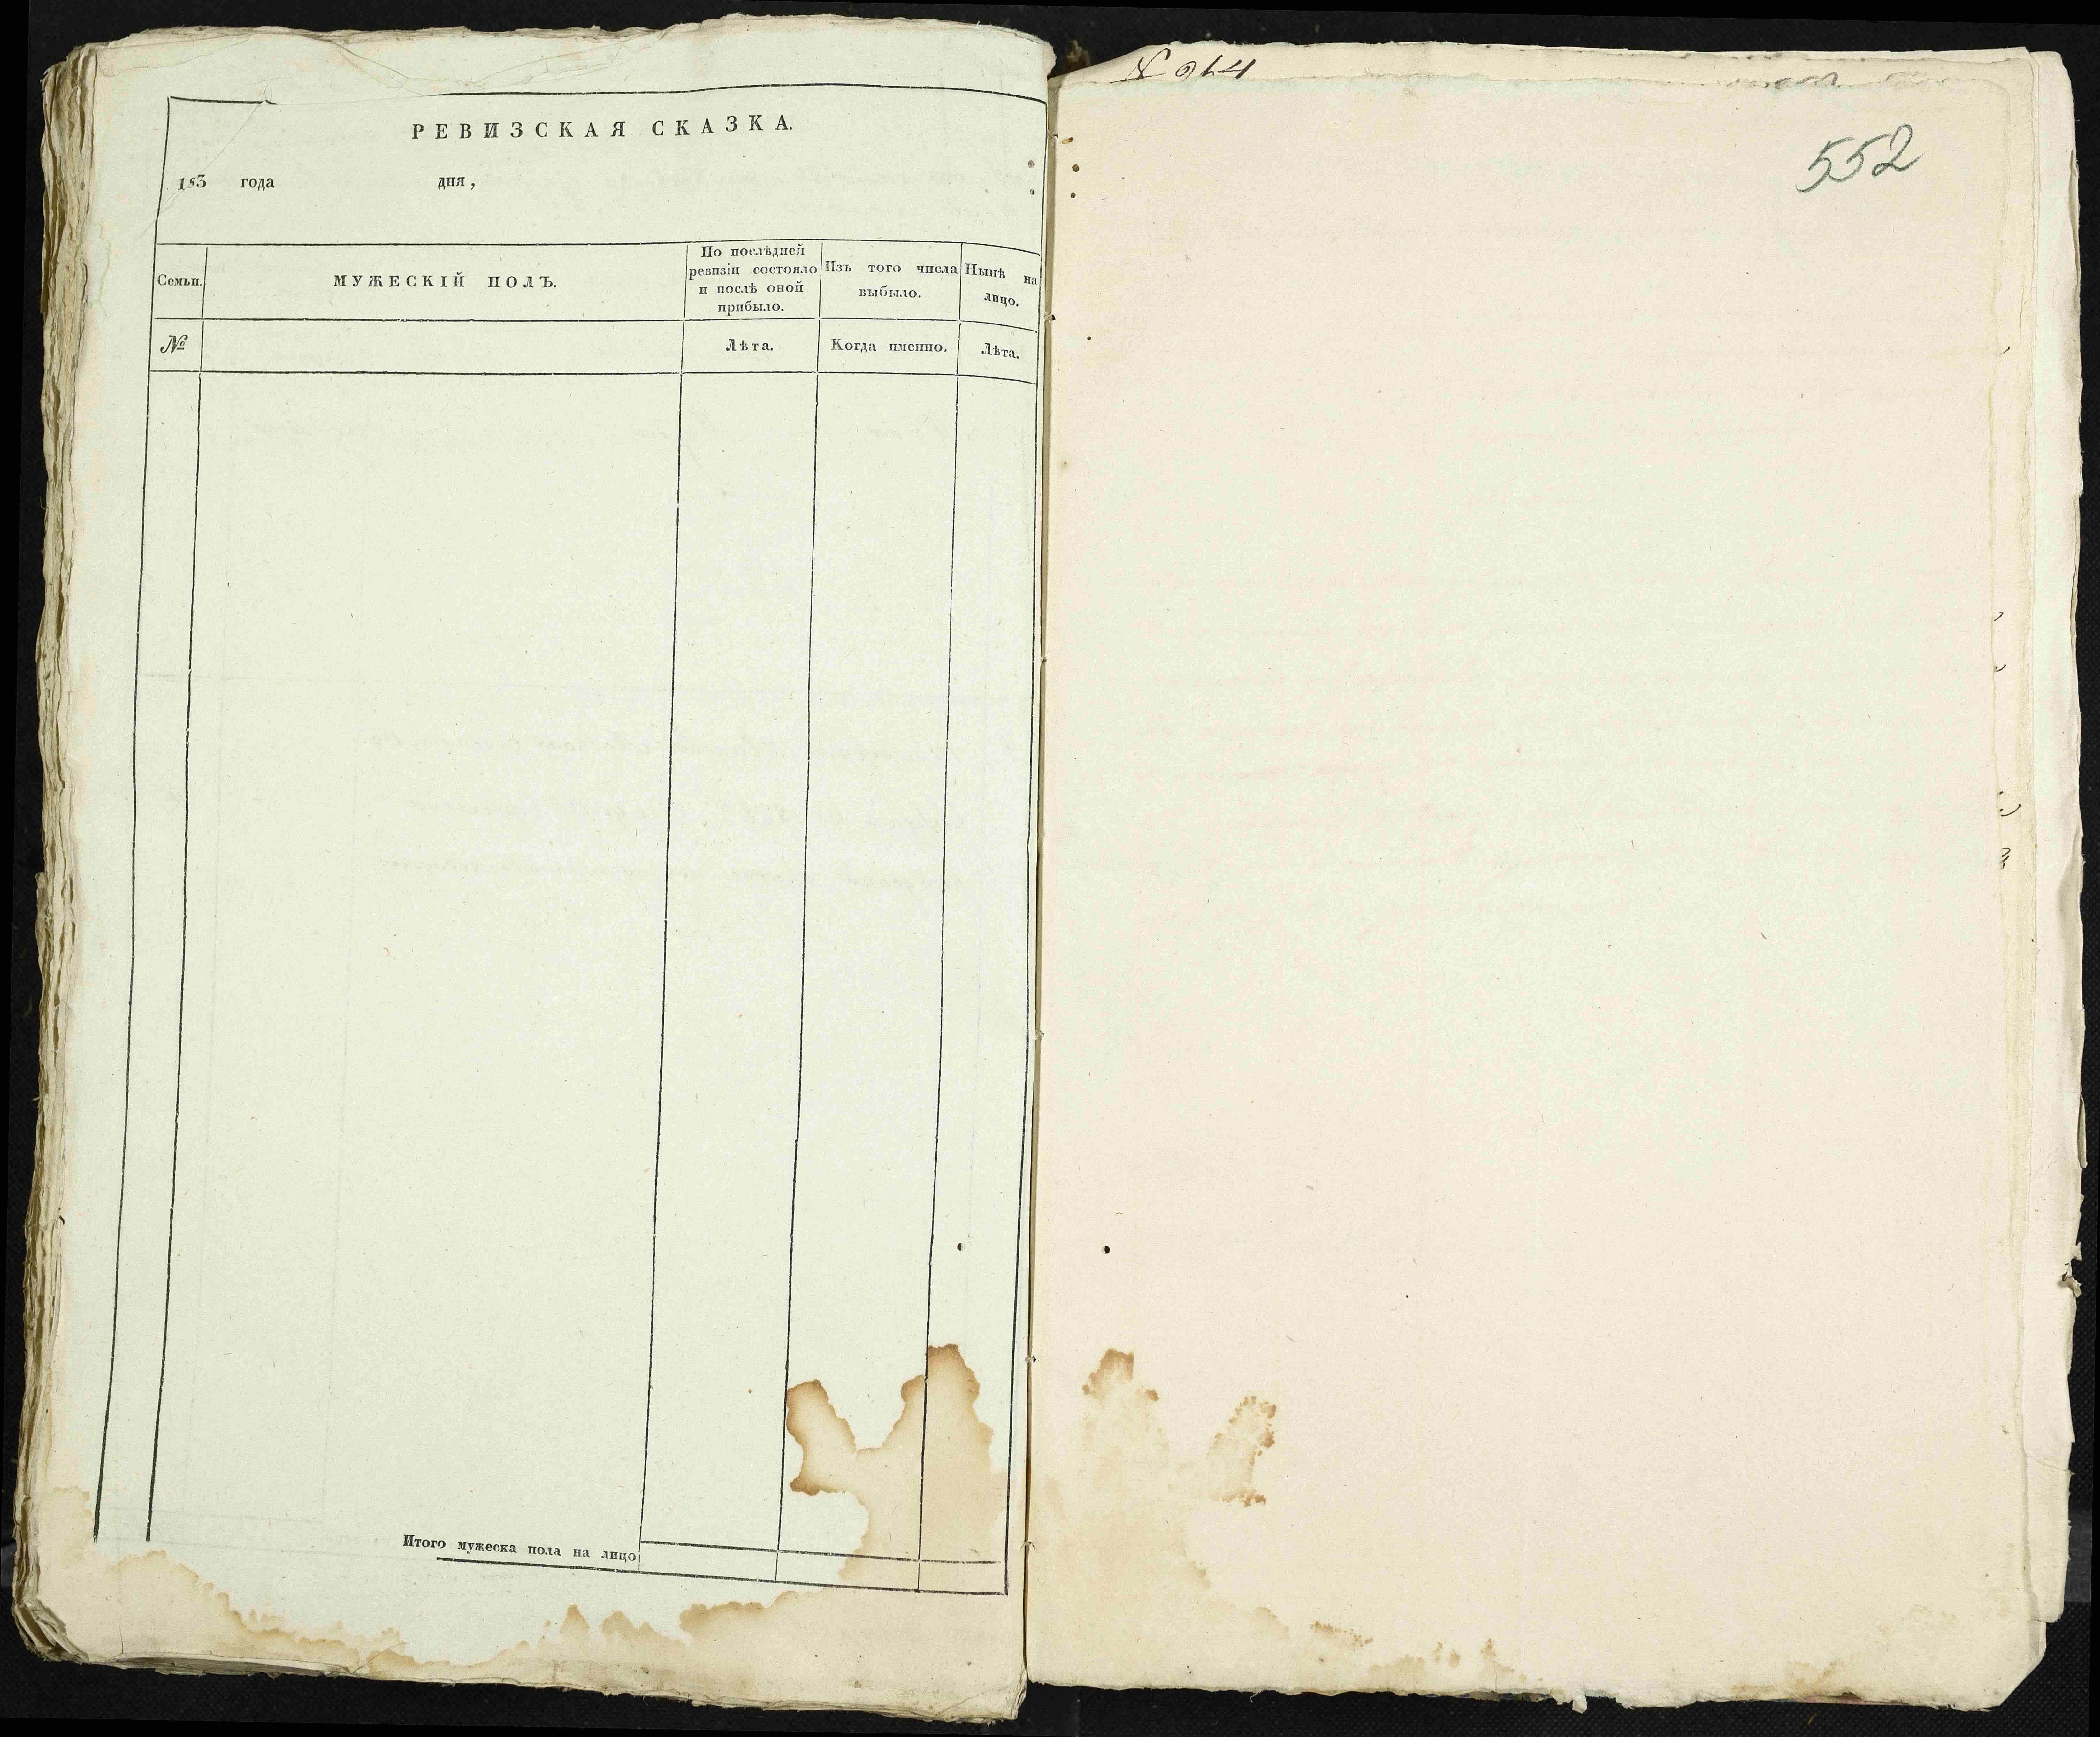 РЕВИЗСКАЯ СКАЗКА.
183 года дня,
Семьи.
МУЖЕСКІЙ ПОЛЪ.
По послѣдней
ревизіи состояло
и послѣ оной
прибыло.
Изъ того числа
выбыло.
Нынѣ на
лицо.
№
Лѣта.
Когда именно.
Лѣта.
Итого мужеска пола на лицо
552